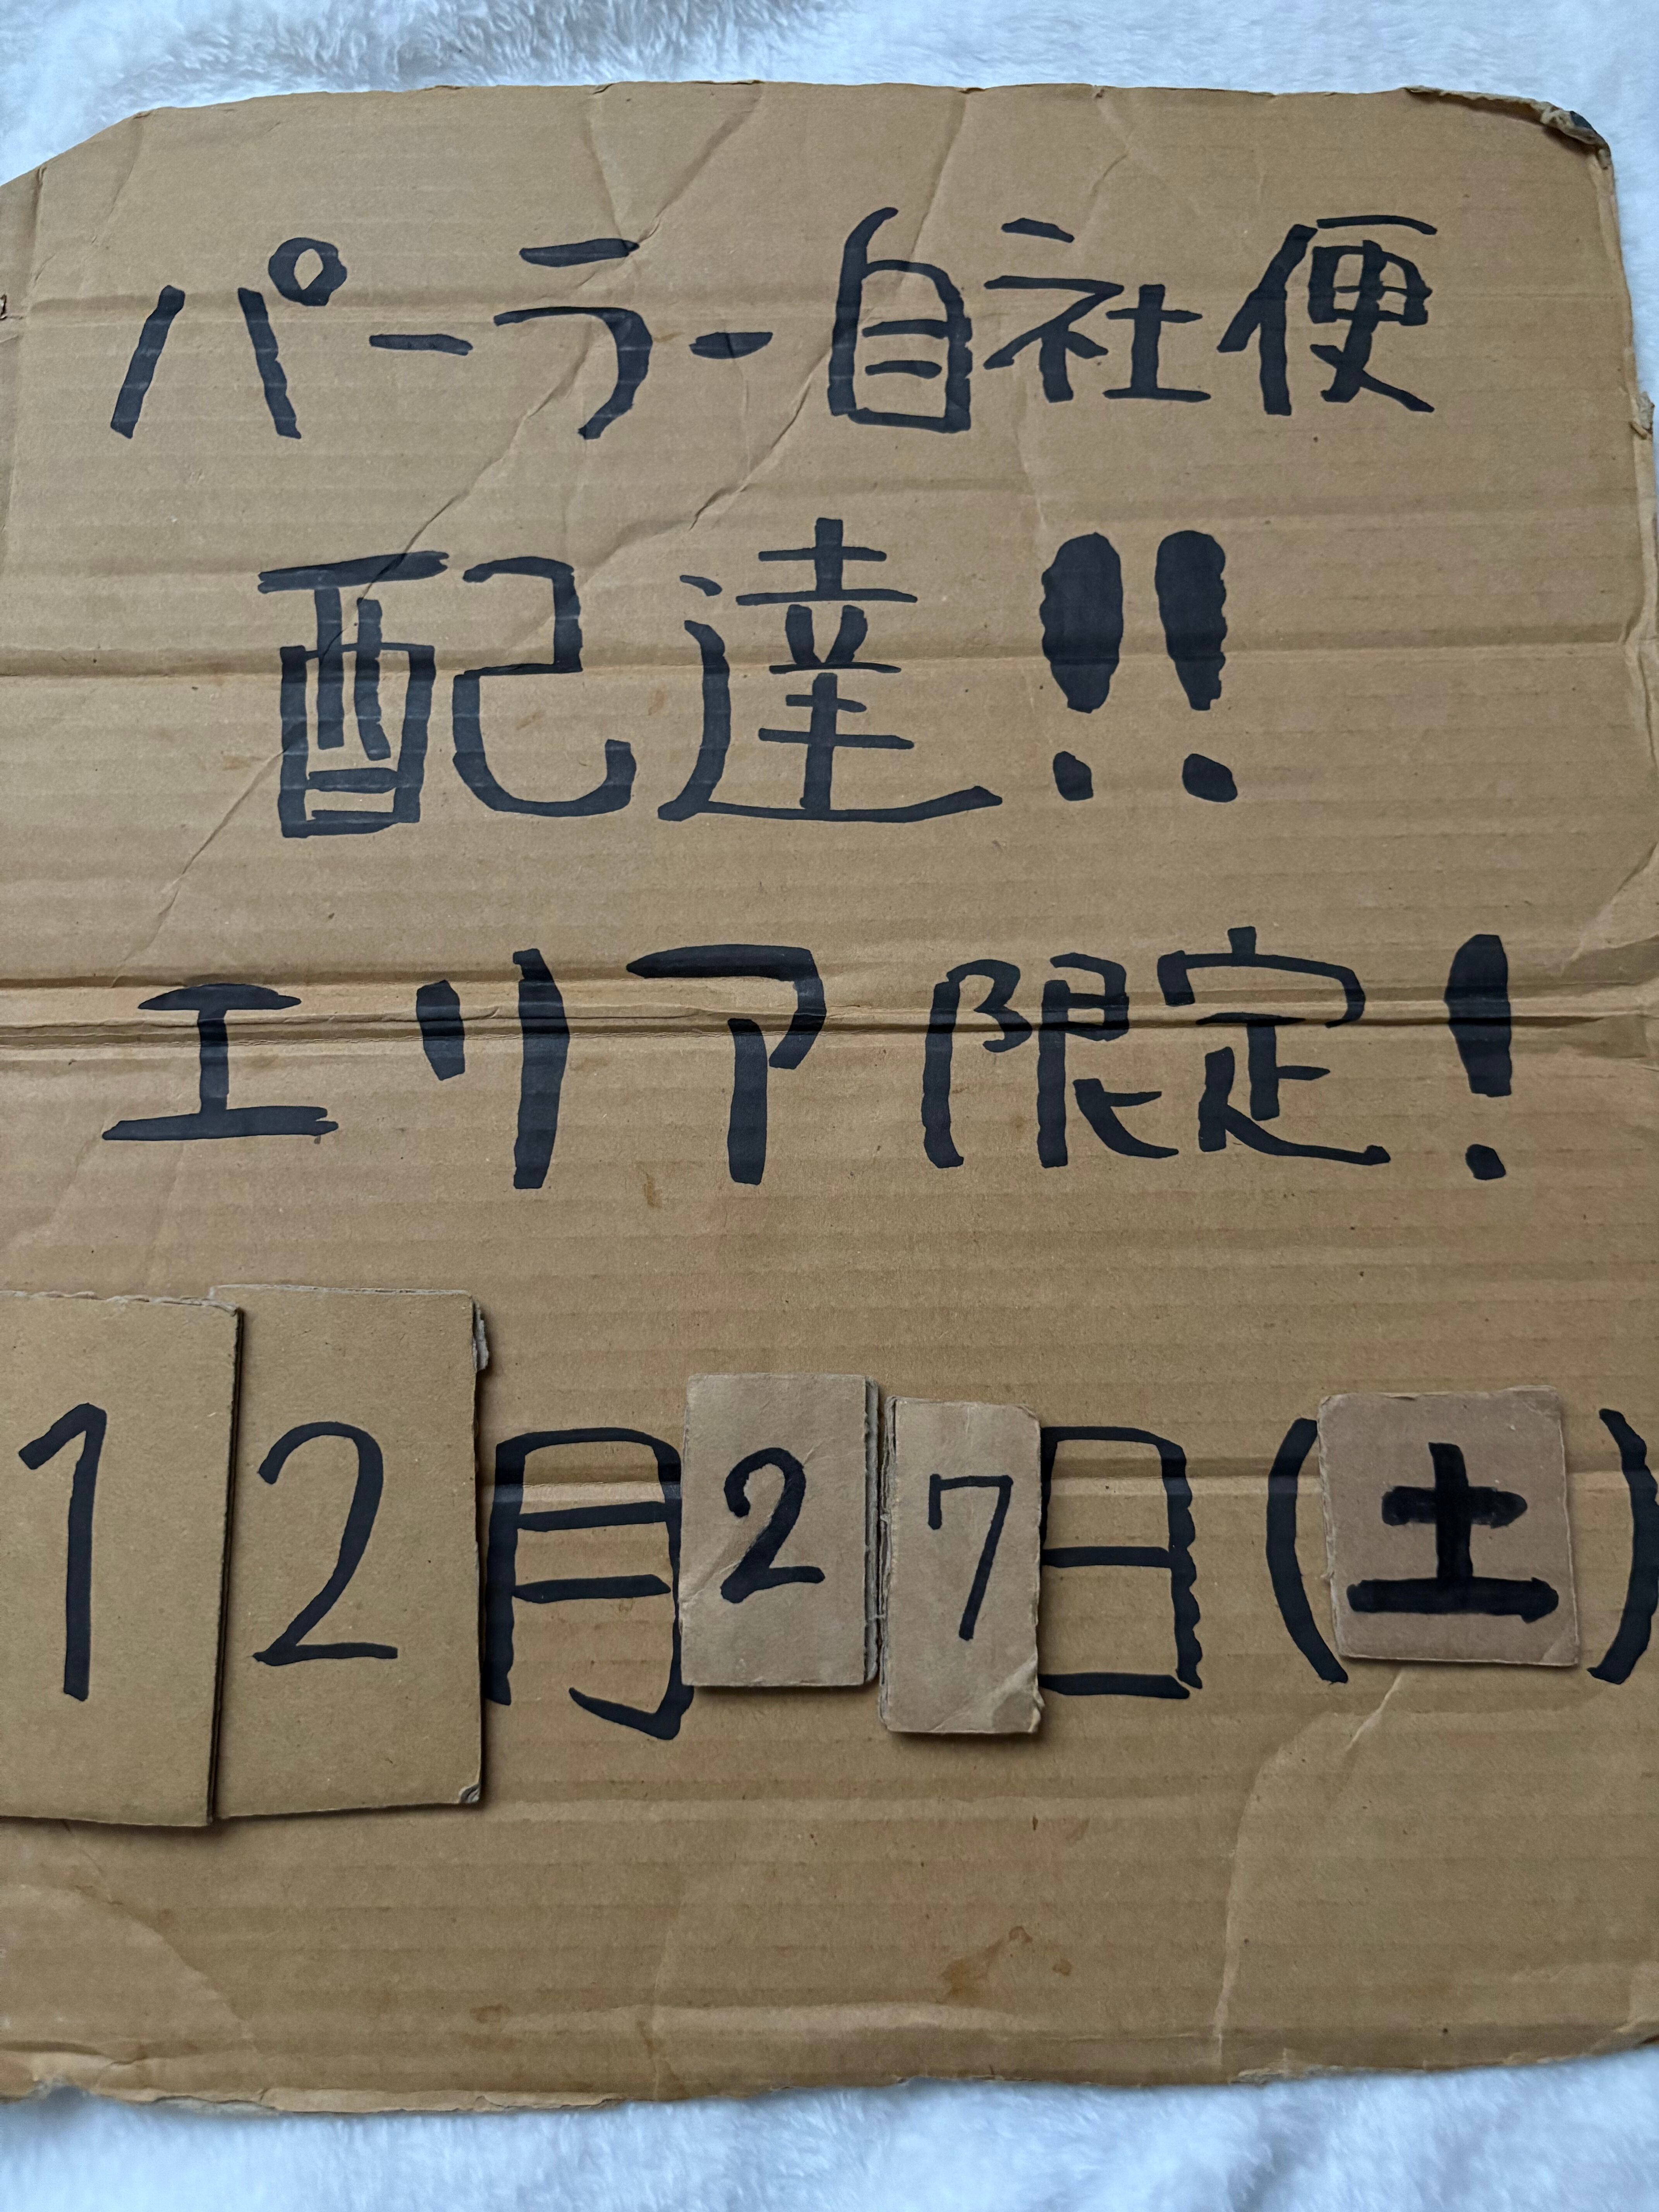 パーラー自社便
配達!!
エリア限定!
12月27日(土)